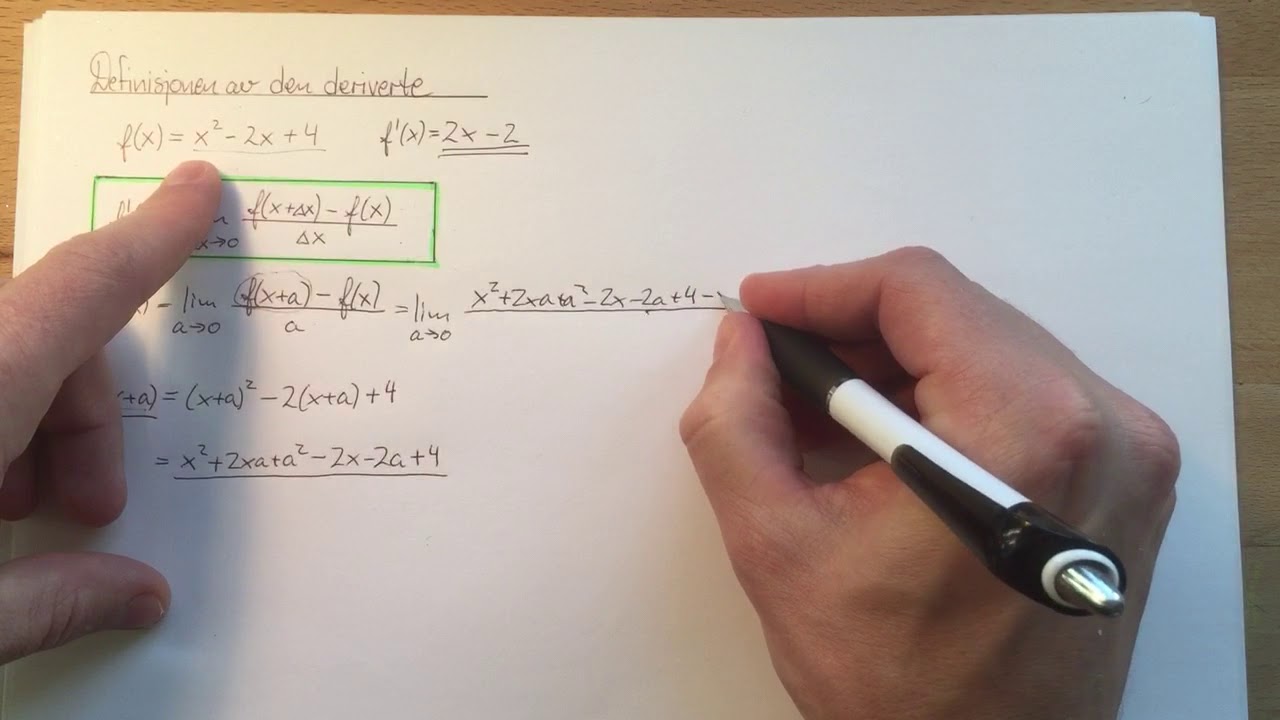 Definisjonen av den deriverte
f(x) = x² - 2x + 4 f'(x) = 2x - 2
f(x+Δx) - f(x)
x→0 Δx
lim f(x+a) - f(x) = lim x²+2xa+a²-2x-2a+4-
a→0 a a→0
+a) = (x+a)² - 2(x+a) + 4
= x²+2xa+a²-2x-2a+4